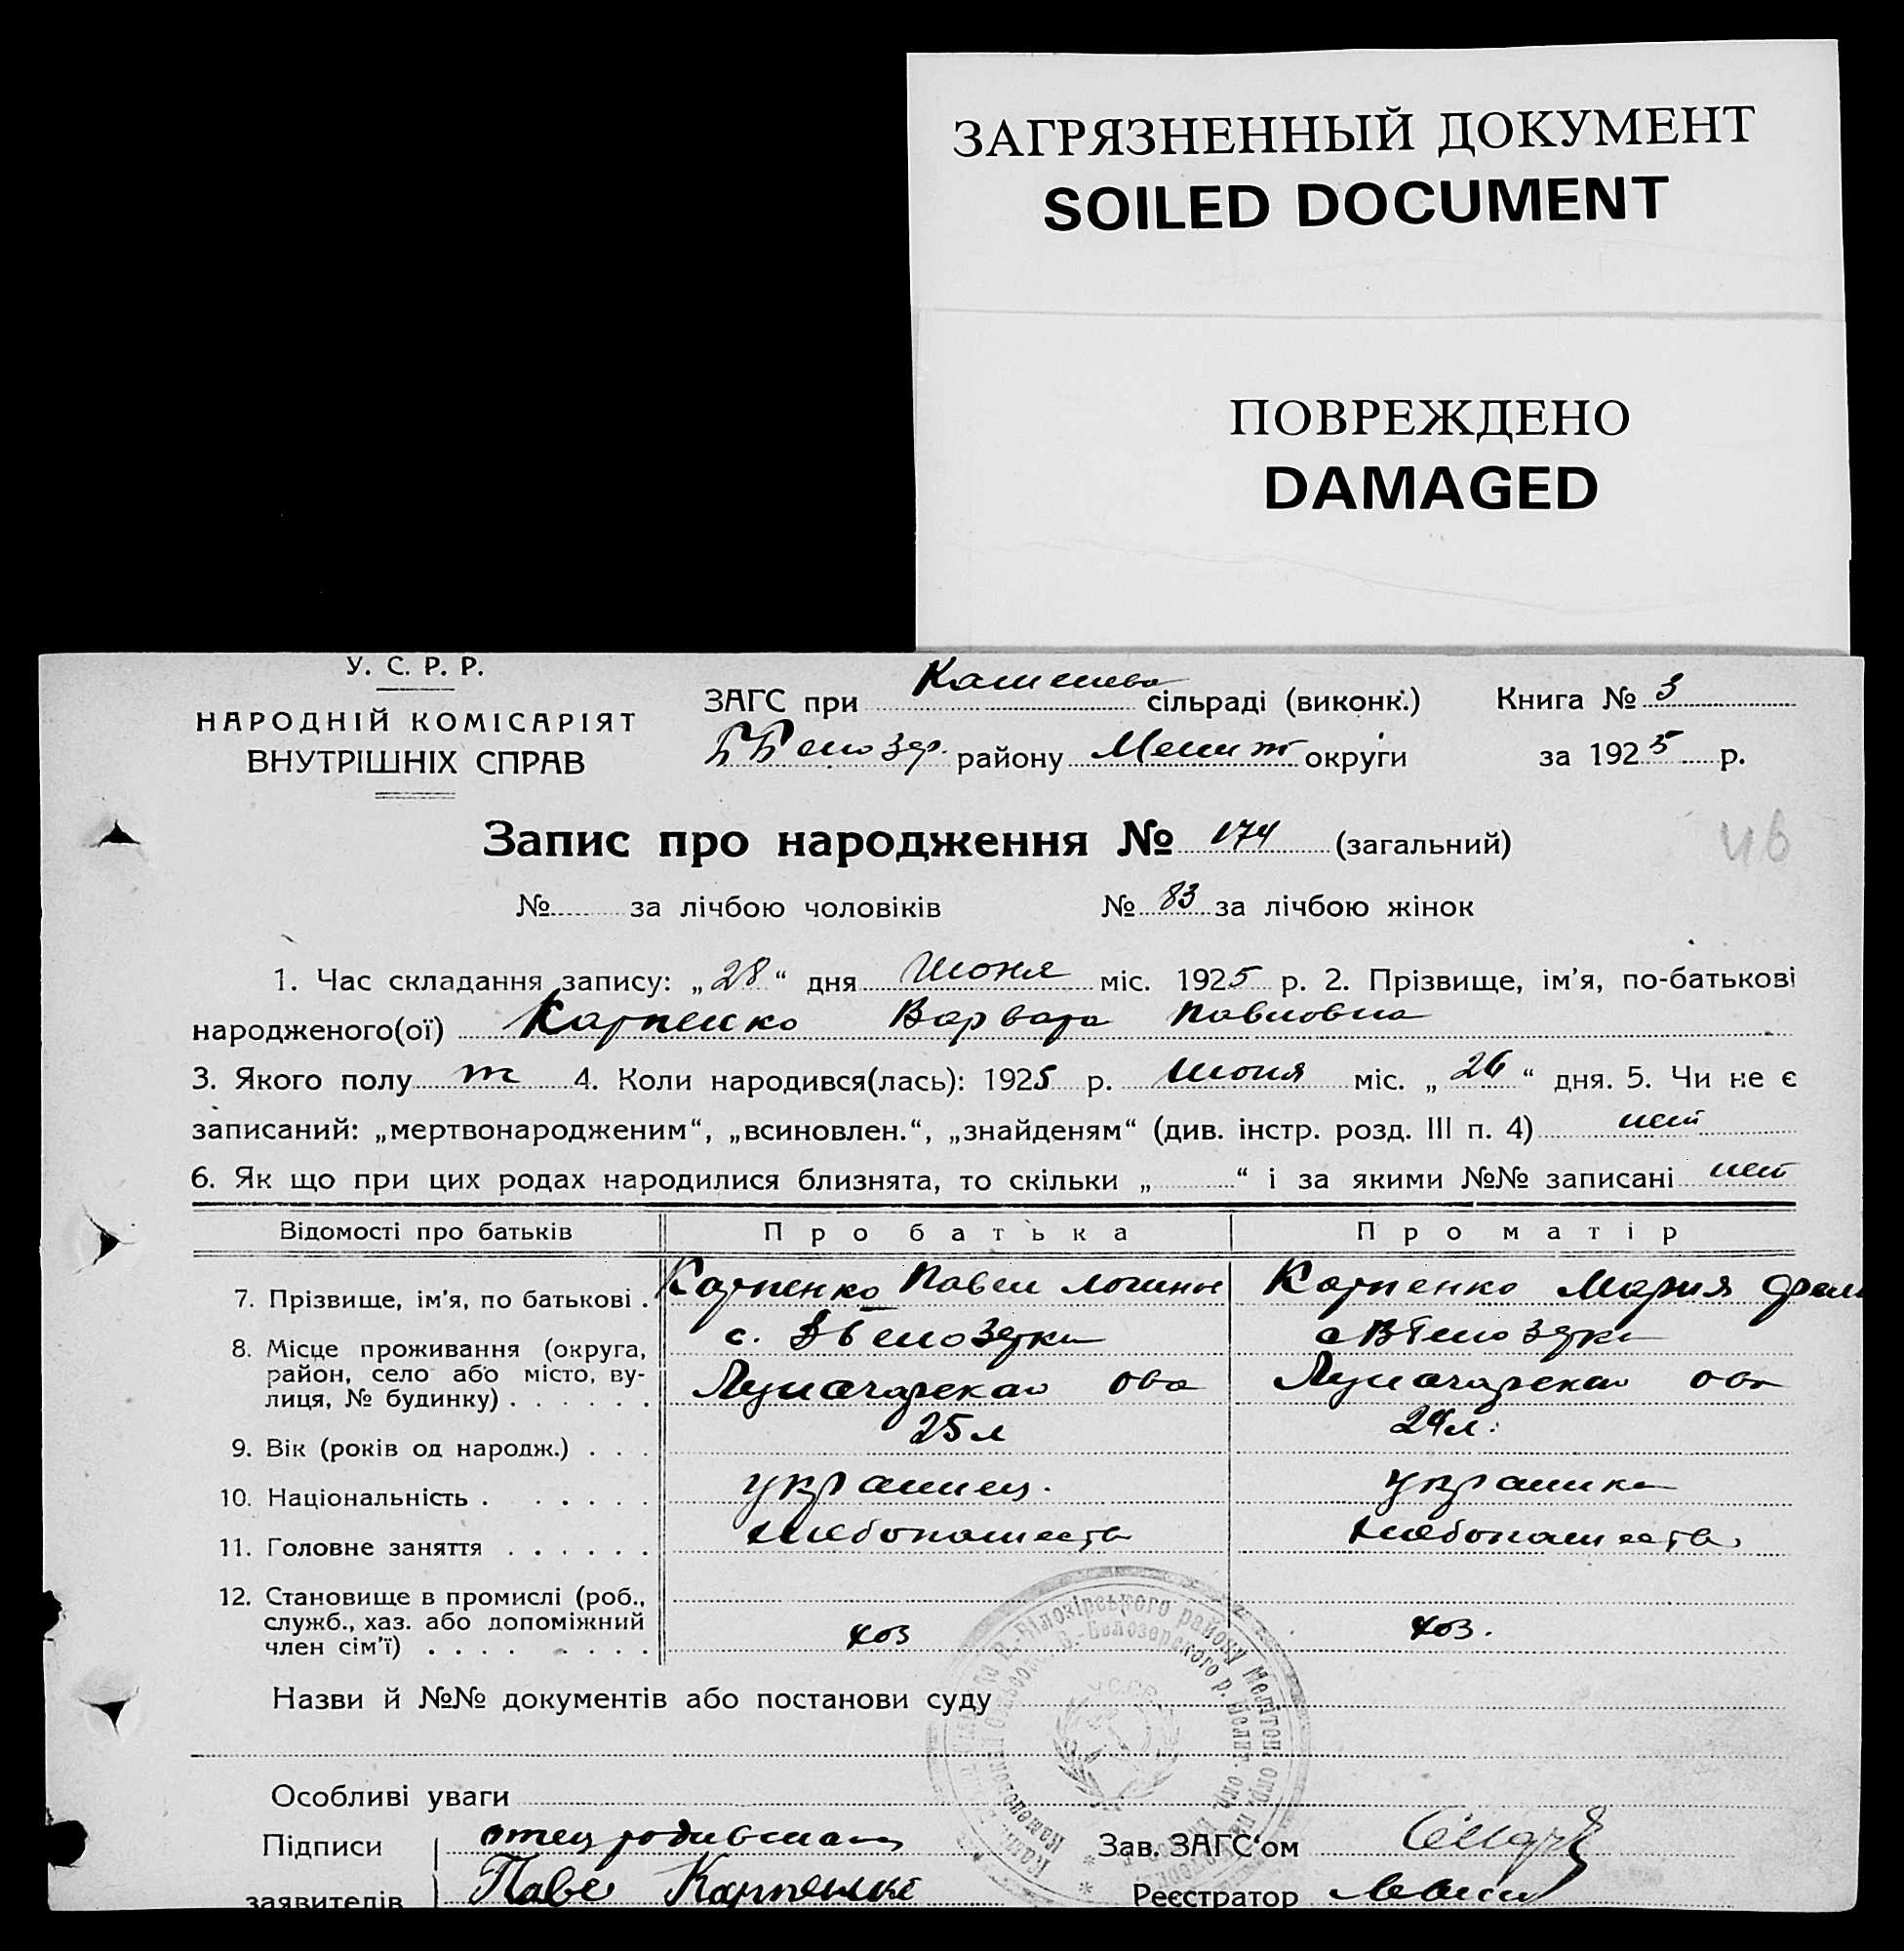 ЗАГРЯЗНЕННЫЙ ДОКУМЕНТ
SOILED DOCUMENT
ПОВРЕЖДЕНО
DAMAGED
У. С. Р. Р.
НАРОДНІЙ КОМІСАРІЯТ
ВНУТРІШНІХ СПРАВ
ЗАГС при сільраді (виконк.) Книга № 3
району Мелит округи за 1925 р.
Запис про народження № 174 (загальний)
№ за лічбою чоловіків № 83 за лічбою жінок
1. Час складання запису: „28“ дня Июня міс. 1925 р. 2. Прізвище, ім'я, по-батькові
народженого(ої) Карпенко Варвара Павловна
3. Якого полу 4. Коли народився(лась): 1925 р. Июня міс. „26“ дня. 5. Чи не є
записаний: „мертвонародженим“, „всиновлен.“, „знайденям“ (див. інстр. розд. III п. 4) нет
6. Як що при цих родах народилися близнята, то скільки „ “ і за якими №№ записані нет
Відомості про батьків Про батька Про матір
7. Прізвище, ім'я, по батькові . Карпенко Павел Карпенко Мария
8. Місце проживання (округа,
район, село або місто, вулиця, № будинку) . . . . . .
с. Белозерка
Луначарская Луначарская
9. Вік (років од народж.) . . . 25 л 24 л.
10. Національність . . . . . . украинец. украинка
11. Головне заняття . . . . . . хлебопашеств хлебопашеств
12. Становище в промислі (роб.,
служб., хаз. або допоміжний
член сім'ї) . . . . . . . . хоз хоз.
Назви й №№ документів або постанови суду
Особливі уваги
Підписи отец Зав. ЗАГС'ом
заявителів Карпенко Реєстратор